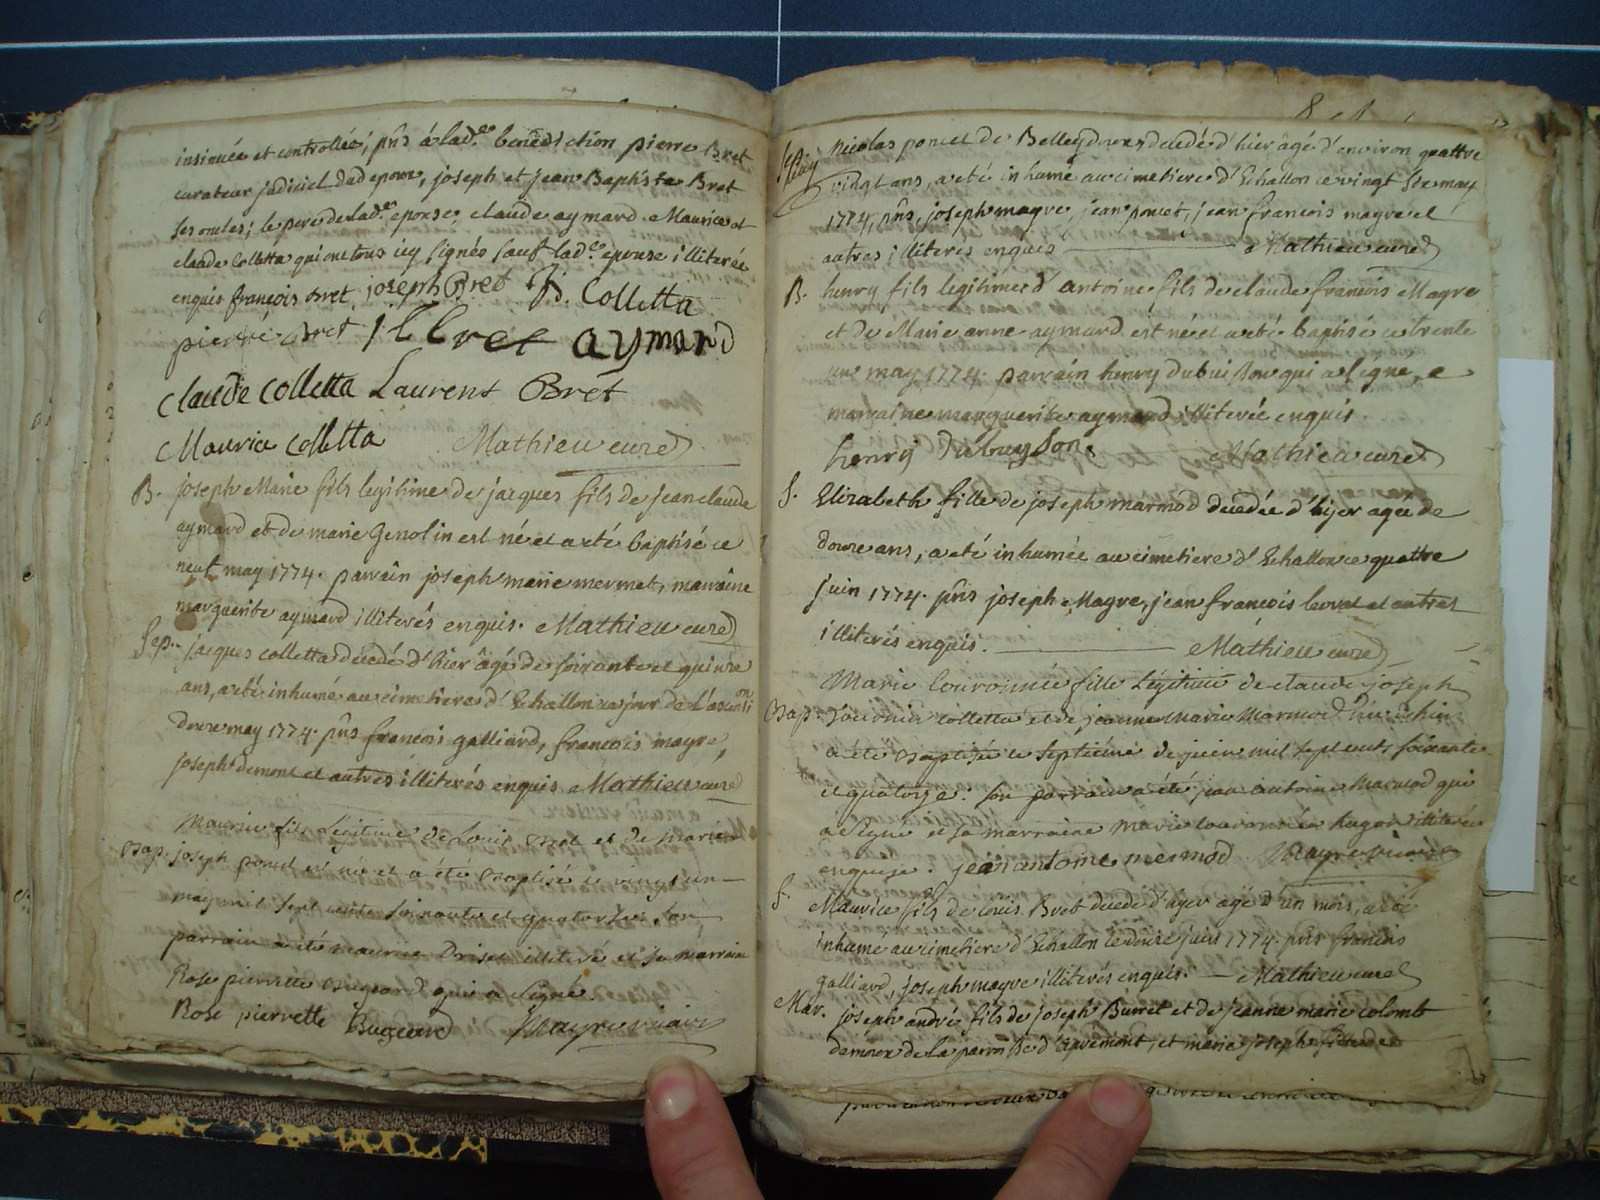 insinuée et controllée; pñs à lad.e bénédiction pierre Bret
curateur judiciel dud epoux, joseph et jean Baptiste Bret
ses oncles; le pere de lad.e epouse, claude aymard Maurice et
claude Colletta qui ont tous icy signés sauf lad.e epouse illiterée
enquis françois Bret joseph Bret Colletta
pierre Bret Bret aymard
Claude Colletta Laurent Bret
Maurice Colletta Mathieu curé
B. joseph Marie fils legitime de jacques fils de jean claude
aymard et de marie Genolin est né et a eté baptisé ce
neuf may 1774. parrain joseph marie mermet, marraine
marguerite aymard illiterés enquis. Mathieu curé
Sep. jacques colletta decedé d'hier âgé de soixante et quinze
ans, a eté inhumé au cimetiere d'Echallon ce jour de L'ascension
douze may 1774. pñs françois galliard, françois magre,
joseph demont et autres illiterés enquis Mathieu curé
Maurice fils Légitime de Louis Bret et de Marie
Bap. joseph poncet est né et a été Baptisé ce vingt un
may mil sept cents soixante et quatorze son
parrain a été maurice illiteré et sa marraine
Rose pierrette Bugeard qui a signé.
Rose pierrette Bugeard Mayre vicaire
Nicolas poncet de Belleydoux decedé d'hier âgé d'environ quattre
vingt ans, a eté inhumé au cimetiere d'Echallon ce vingt six may
1774, pñs joseph magre, jean poncet, jean françois magre et
autres illiteres enquis Mathieu curé
B. henry fils legitime d'Antoine fils de claude françois Magre
et de Marie anne aymard est né et a eté baptisé ce trente
un may 1774. parrain henry dubuisson qui a signé, e
marraine marguerite aymard illiterée enquis.
henry Dubuysson Mathieu curé
S. Elizabeth fille de joseph marmod decedée d'hyer agée de
douze ans, a eté inhumée au cimetiere d'Echallon ce quattre
juin 1774. pñs joseph Magre, jean françois et autres
illiterés enquis. Mathieu curé
Marie Couronnée fille Légitime de claude joseph
Bap. colletta et de jeanne Marie Marmod
a été Baptisée le septième de juin mil sept cents soixante
et quatorze. son parrain a été jean antoine Marmod qui
a signé et sa marraine Marie Couronnée hugon illiterée
enquise. jean antoine mermod Mayre vicaire
S. Maurice fils de Louis Bret decedé d'hyer agé d'un mois, a eté
inhumé au cimetiere d'Echallon le douze juin 1774. pñs françois
galliard, joseph magre illiterés enquis. Mathieu curé
Mar. joseph andré fils de joseph Burret et de jeanne marie colomb
de la parroisse d'apremont, et marie joseph fille de